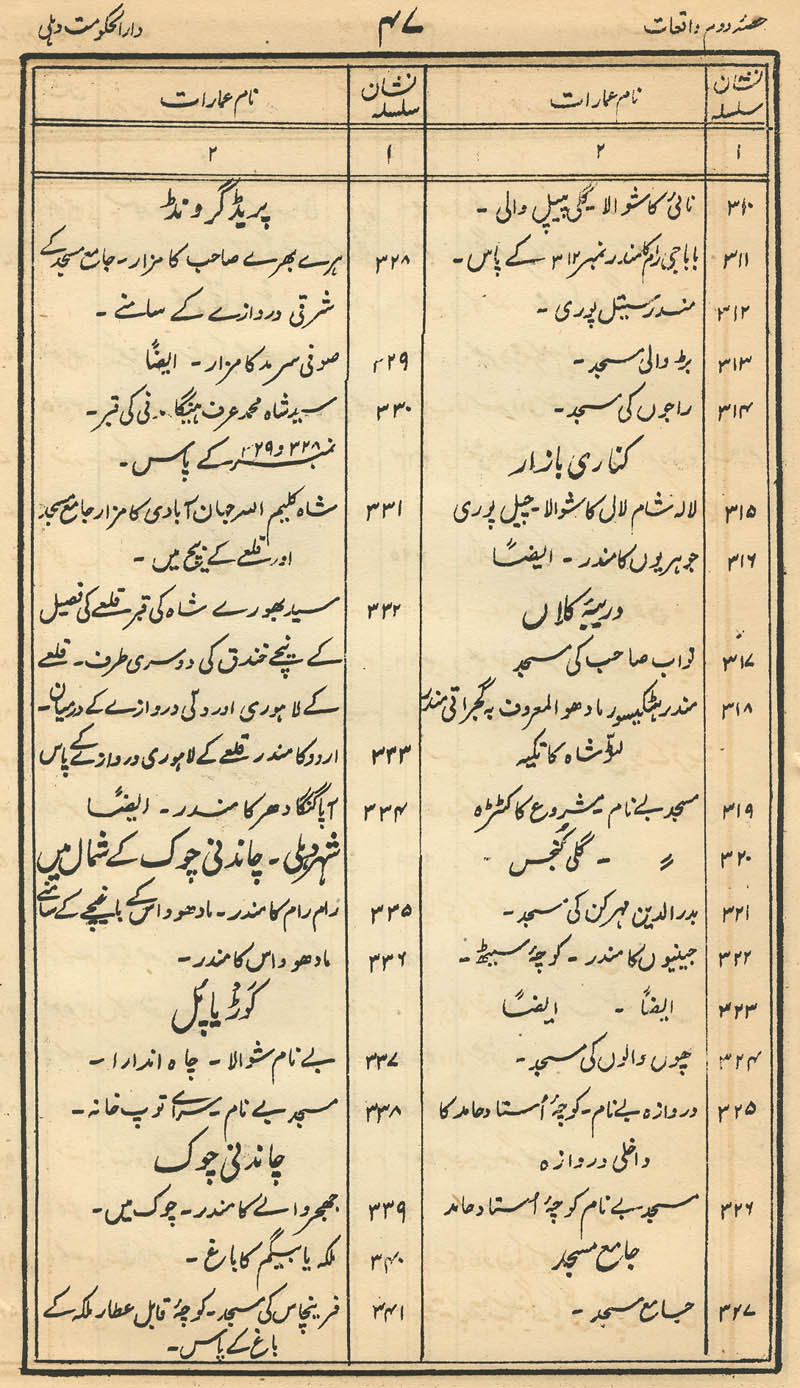 حصۂ دوم واقعات
۴۷
دارالحکومت دہلی
نشان سلسلہ
نام عمارات
۱
۲
۳۱۰ نائی کا شوالا۔ گلی پیپل والی۔
۳۱۱ باباجی رام کا مندر نمبر ۳۱۲ کے پاس۔
۳۱۲ مندر سیتل پوری۔
۳۱۳ بڑ والی مسجد۔
۳۱۴ راجوں کی مسجد۔
کناری بازار
۳۱۵ لالہ شام لال کا شوالا۔ چیل پوری
۳۱۶ جوہریوں کا مندر۔ ایضاً
دریبۂ کلاں
۳۱۷ نواب صاحب کی مسجد
۳۱۸ مندر ہٹکیسور مادھو المعروف بہ گجراتی مندر
لڈّ شاہ کا تکیہ
۳۱۹ مسجد بے نام مشروع کا کٹڑہ
۳۲۰ 〃 ۔ گلی گنجس
۳۲۱ بدرالدین مہرکن کی مسجد۔
۳۲۲ جینیوں کا مندر۔ کوچۂ سیٹھ۔
۳۲۳ ایضاً ۔ ایضاً
۳۲۴ چوں والوں کی مسجد۔
۳۲۵ دروازہ بے نام۔ کوچۂ اُستاد حامد کا
داخلی دروازہ
۳۲۶ مسجد بے نام کوچۂ اُستاد حامد
جامع مسجد
۳۲۷ جامع مسجد۔
نشان سلسلہ
نام عمارات
۱
۲
پریڈ گرونڈ
۳۲۸ ہرے بھرے صاحب کا مزار۔ جامع مسجد کے
شرقی دروازے کے سامنے۔
۳۲۹ صوفی سرمد کا مزار۔ ایضاً
۳۳۰ سید شاہ محمد عرف ہینگا مدنی کی قبر۔
نمبر ۳۲۸ و ۳۲۹ کے پاس۔
۳۳۱ شاہ کلیم اللہ جہان آبادی کا مزار جامع مسجد
اور قلعے کے بیچ میں۔
۳۳۲ سید بھورے شاہ کی قبر قلعے کی فصیل
کے نیچے خندق کی دوسری طرف۔ قلعے
کے لاہوری اور دلّی دروازے کے درمیان۔
۳۳۳ اردو کا مندر قلعے کے لاہوری دروازے کے پاس
۳۳۴ آپا گنگا دھر کا مندر۔ ایضاً
شہر دہلی۔ چاندنی چوک کے شمال میں
۳۳۵ رام رام کا مندر۔ مادھو داس کے باغیچے کے سامنے
۳۳۶ مادھو داس کا مندر۔
کوڑیا پُل
۳۳۷ بے نام شوالا۔ چاہ اندارا۔
۳۳۸ مسجد بے نام۔ سرائے توپ خانہ۔
چاندنی چوک
۳۳۹ جھجر والے کا مندر۔ چوک میں۔
۳۴۰ ملکہ یا بیگم کا باغ۔
۳۴۱ فرینچاس کی مسجد۔ کوچۂ قابل عطار ملکہ کے
باغ کے پاس۔